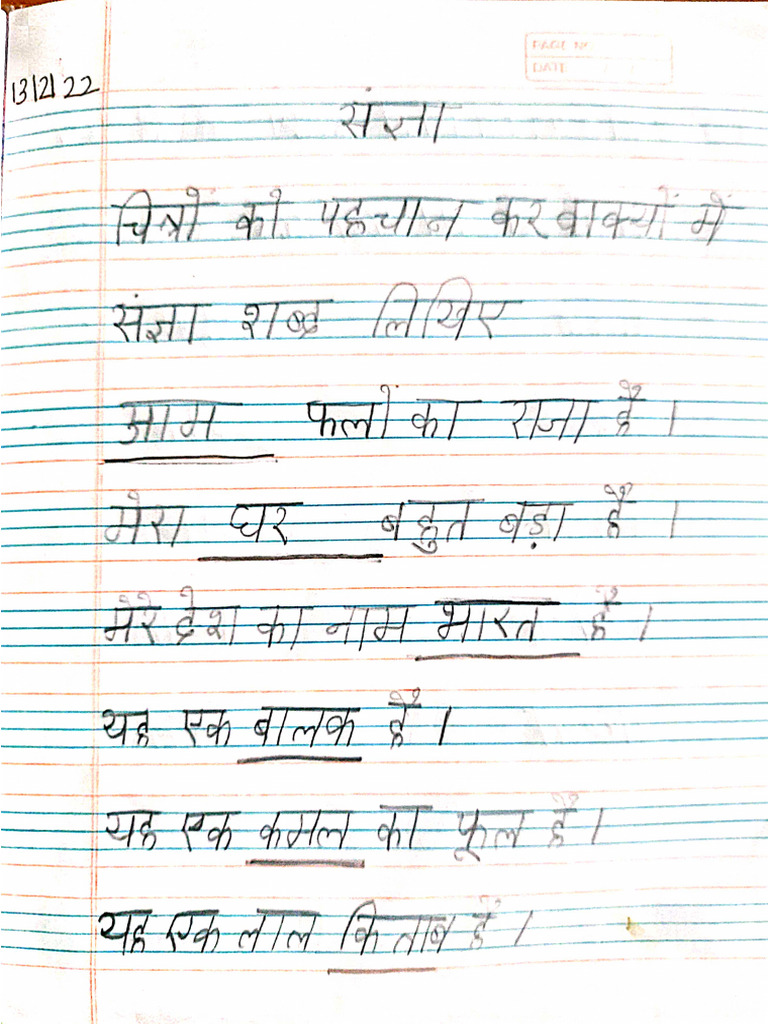 PAGE No
DATE
13|2|22
संज्ञा
चित्रों को पहचान कर वाक्यों में
संज्ञा शब्द लिखिए
आम फलों का राजा है।
मेरा घर बहुत बड़ा है।
मेरे देश का नाम भारत है।
यह एक बालक है।
यह एक कमल का फूल है।
यह एक लाल किताब है।